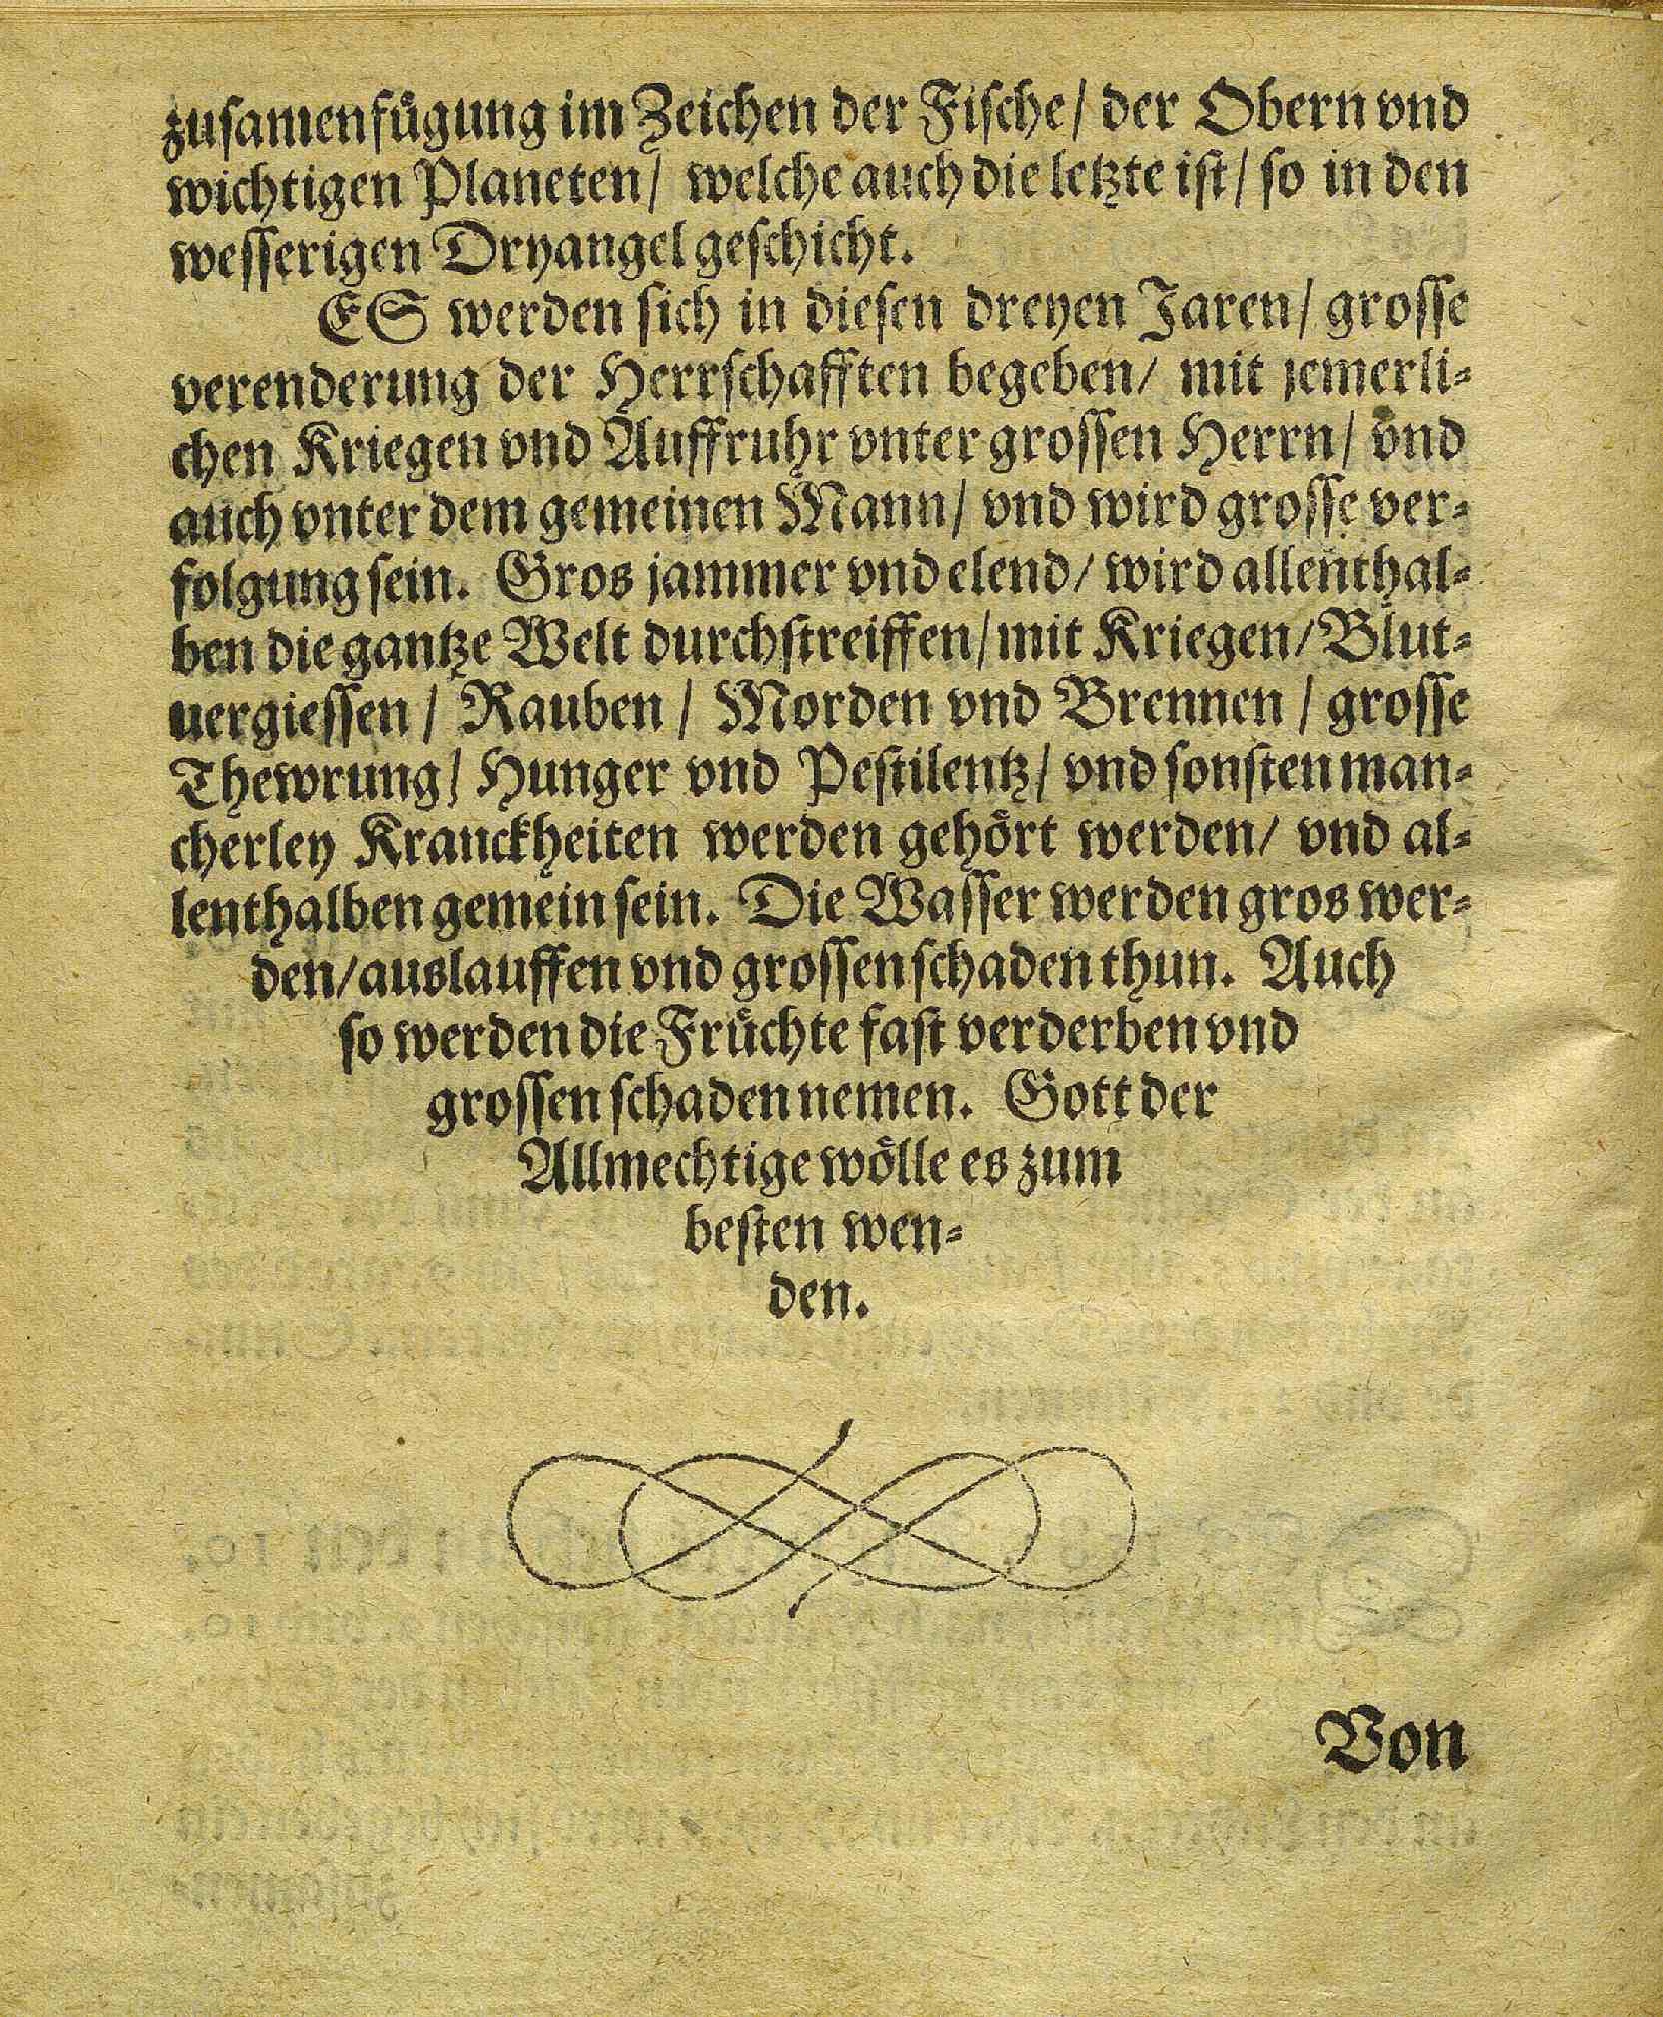 zusamenfügung im Zeichen der Fische/ der Obern vnd
wichtigen Planeten/ welche auch die letzte ist/ so in den
wesserigen Dryangel geschicht.
ES werden sich in diesen dreyen Jaren/ grosse
verenderung der Herrschafften begeben/ mit jemerli-
chen Kriegen vnd Auffruhr vnter grossen Herrn/ vnd
auch vnter dem gemeinen Mann/ vnd wird grosse ver-
folgung sein. Gros jammer vnd elend/ wird allenthal-
ben die gantze Welt durchstreiffen/ mit Kriegen/ Blut-
uergiessen/ Rauben/ Morden vnd Brennen/ grosse
Thewrung/ Hunger vnd Pestilentz/ vnd sonsten man-
cherley Kranckheiten werden gehört werden/ vnd al-
lenthalben gemein sein. Die Wasser werden gros wer-
den/ auslauffen vnd grossen schaden thun. Auch
so werden die Früchte fast verderben vnd
grossen schaden nemen. Gott der
Allmechtige wölle es zum
besten wen-
den.
Von